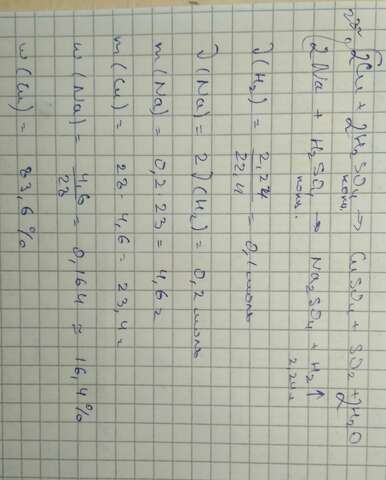 28г, 2Cu + 2H₂SO₄ конц. → CuSO₄ + SO₂ + 2H₂O
2Na + H₂SO₄ конц. → Na₂SO₄ + H₂↑ 2,24л
ν(H₂) = 2,24/22,4 = 0,1 моль
ν(Na) = 2ν(H₂) = 0,2 моль
m(Na) = 0,2·23 = 4,6г
m(Cu) = 28 - 4,6 = 23,4г
w(Na) = 4,6/28 = 0,164 ≈ 16,4%
w(Cu) = 83,6%